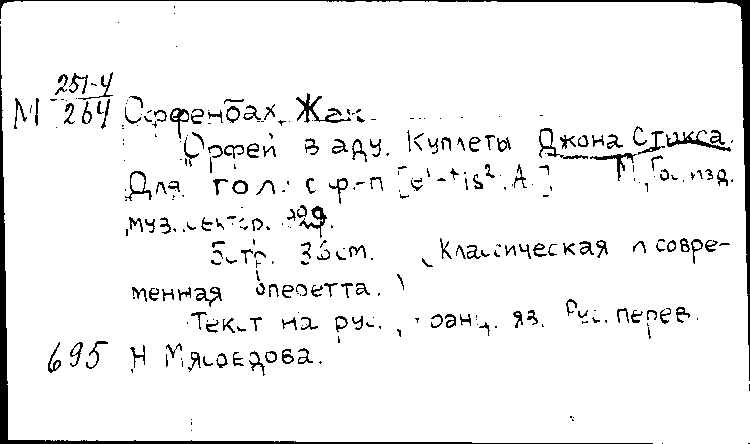 251-4
М 264 Оффенбах, Жак.
"Орфей в аду. Куплеты Джона Стикса.
Для гол. с ф.-п [e¹-fis². A.] М., Гос. изд.
муз. сектор. 1929.
5 стр. 36 ст. (Классическая и совре-
менная оперетта.)
Текст на рус., франц. яз. Рус. перев.
695 Н Мясоедова.